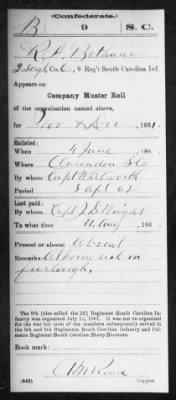 (Confederate.)
B 9 S.C.
R. A. Bethune
2 Sergt, Co. C, 9 Reg't South Carolina Inf.
Appears on
Company Muster Roll
of the organization named above,
for Nov & Dec, 1861.
Enlisted:
When 4 June, 186 .
Where Clarendon
By whom Capt
Period
Last paid:
By whom Capt
To what time 31 Aug, 186 .
Present or absent Absent
Remarks: At home sick on
furlough.
The 9th (also called the 2d) Regiment South Carolina In-
fantry was organized July 12, 1861. It was not re-organized
for the war but most of the members subsequently served in
the 5th and 6th Regiments South Carolina Infantry and Pal-
metto Regiment South Carolina Sharp Shooters.
Book mark:
(642)
Copyist.